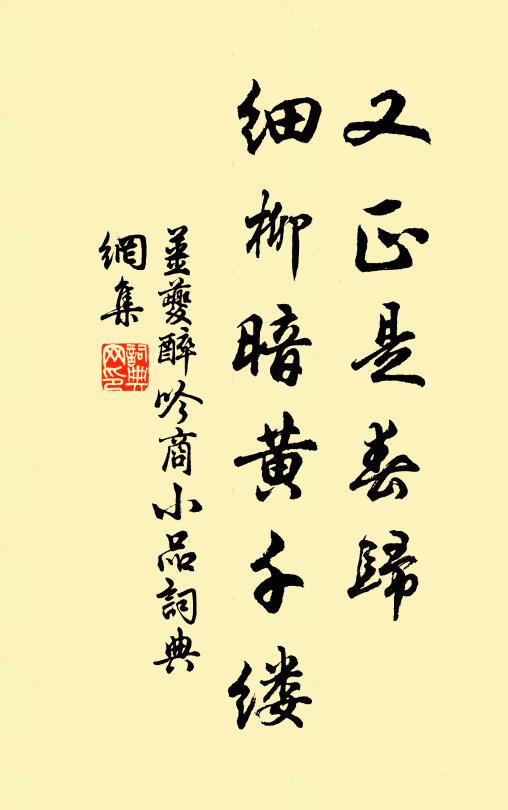 又正是春歸
细柳暗黄千缕
姜夔醉吟商小品詞典
網集
詞典网印